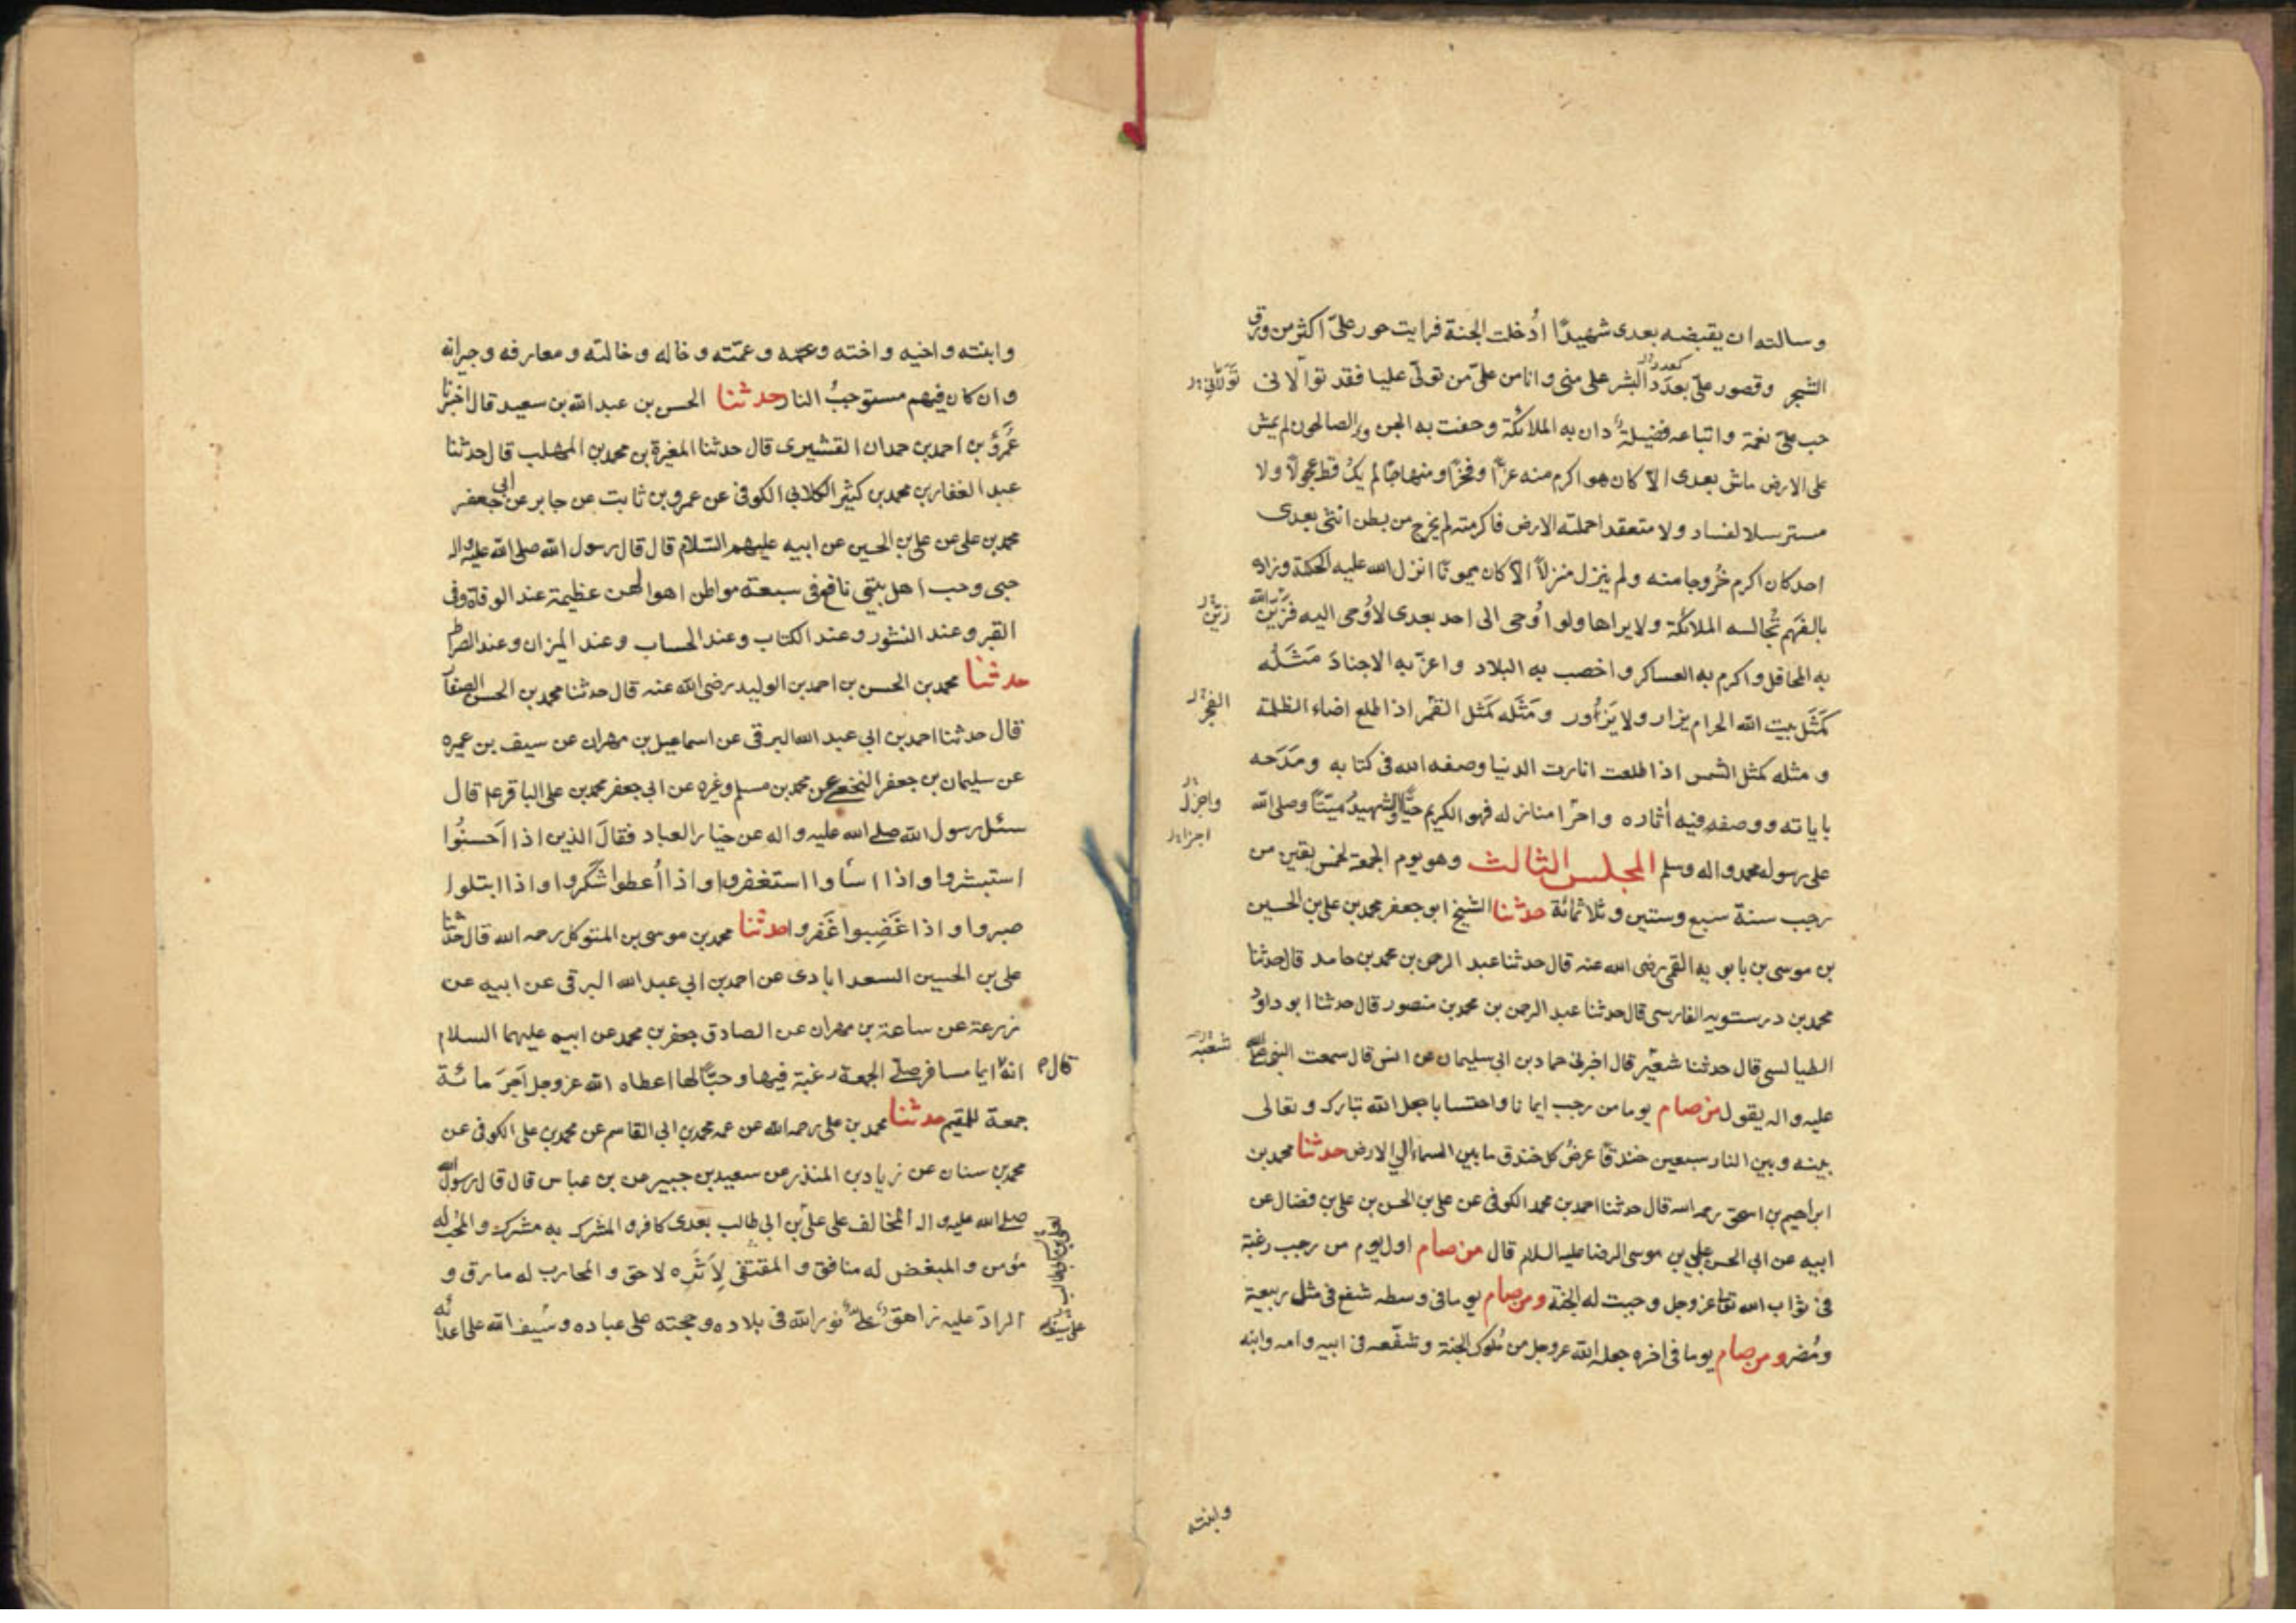 وسالته ان يقبضه بعدى شهيدًا اُدخلت الجنة فرايت حور علىّ اكثر من ورق
الشجر وقصور علىّ بعدد البشر على منى وانا من علىّ من تولّى عليا فقد توالانى
حب علىّ نعمة واتباعه فضيلة دان به الملائكة وحفت به الجن والصالحون لم يمش
على الارض ماش بعدى الاّ كان هو اكرم منه عزًّا وفخرًا ومنهاجًا لم يكُ قط عجولاً ولا
مسترسلا لفساد ولا متعقدا حملته الارض فاكرمته لم يخرج من بطن انثى بعدى
احد كان اكرم خُروجا منه ولم ينزل منزلاً الاّ كان ميمونًا انزل الله عليه الحكمة وزاده
بالفَهم تُجالسه الملائكة ولا يراها ولو اُوحى الى احد بعدى لاُوحى اليه فزَيّن الله
به المحافل واكرم به العساكر واخصب به البلاد واعزّ به الاجنادَ مَثَلُه
كَمَثَل بيت الله الحرام يزار ولا يَزُور ومَثَله كمَثل القَمر اذا طلع اضاء الظلمة
ومثله كمثل الشمس اذا طلعت انارت الدنيا وصفه الله فى كتابه ومَدَحه
باياته ووصفه فيه اٰثاره واجرٰا منازله فهو الكريم حيًّا والشهيدُ مَيّتًا وصلى الله
على رسوله محمد واله وسلم المجلس الثالث وهو يوم الجمعة لخمس بقين من
رجب سنة سبع وستين وثلاثمائة حدثنا الشيخ ابو جعفر محمد بن على بن الحسين
بن موسى بن بابويه القمى رضى الله عنه قال حدثنا عبد الرحمن بن محمد بن حامد قال حدثنا
محمد بن درستويه الفارسى قال حدثنا عبد الرحمن بن محمد بن منصور قال حدثنا ابو داود
الطيالسى قال حدثنا قال اخبرنى حماد بن ابى سليمان عن انس قال سمعت النبى صلى الله
عليه واله يقول من صام يوما من رجب ايمانا واحتسابا جعل الله تبارك وتعالى
بينه وبين النار سبعين خندقًا عرضُ كل خندق ما بين السماء الى الارض حدثنا محمد بن
ابراهيم بن اسحق رحمه الله قال حدثنا احمد بن محمد الكوفى عن على بن الحسن بن على بن فضال عن
ابيه عن ابى الحسن على بن موسى الرضا عليه السلام قال من صام اول يوم من رجب رغبة
فى ثواب الله عز وجل وجبت له الجنة ومن صام يوما فى وسطه شفع فى مثل ربيعة
ومُضر ومن صام يوما فى اخره جعله الله عز وجل من ملوك الجنة وشفّعه فى ابيه وامه وابنه
زيّن
شعبة
وابنته
وابنته واخيه واخته وعمه وعمّته وخاله وخالته ومعارفه وجيرانه
وان كان فيهم مستوجبُ النار حدثنا الحسن بن عبد الله بن سعيد قال اخبرنا
عَمرو بن احمد بن حمدان القشيرى قال حدثنا المغيرة بن محمد بن المهلب قال حدثنا
عبد الغفار بن محمد بن كثير الكلابى الكوفى عن عمرو بن ثابت عن جابر عن ابى جعفر
محمد بن على عن على بن الحسين عن ابيه عليهم السّلام قال قال رسول الله صلى الله عليه واله
حبى وحب اهل بيتى نافع فى سبعة مواطن اهوالهن عظيمة عند الوفاة وفى
القبر وعند النشور وعند الكتاب وعند الحساب وعند الميزان وعند الصراط
حدثنا محمد بن الحسن بن احمد بن الوليد رضى الله عنه قال حدثنا محمد بن الحسن الصفار
قال حدثنا احمد بن ابى عبد الله البرقى عن اسماعيل بن مهران عن سيف بن عميره
عن سليمان بن جعفر النخعى عن محمد بن مسلم وغيره عن ابى جعفر محمد بن على الباقر ع قال
سئل رسول الله صلى الله عليه واله عن خيار العباد فقال الذين اذا اَحسنُوا
استبشروا واذا اسآوا استغفروا واذا اُعطوا شكروا واذا ابتلوا
صبروا واذا غَضِبوا غَفَروا حدثنا محمد بن موسى بن المتوكل رحمه الله قال حدثنا
على بن الحسين السعد ابادى عن احمد بن ابى عبد الله البرقى عن ابيه عن
زرعة عن سماعة بن مهران عن الصادق جعفر بن محمد عن ابيه عليهما السلام
قال انهٌ ايما مسافر صلى الجمعة رغبة فيها وحبًّا لها اعطاه الله عز وجل اَجرَ مائة
جمعة للمقيم حدثنا محمد بن على رحمه الله عن عمه محمد بن ابى القاسم عن محمد بن على الكوفى عن
محمد بن سنان عن زياد بن المنذر عن سعيد بن جبير عن بن عباس قال قال رسول الله
صلى الله عليه واله المخالف على علىّ بن ابى طالب بعدى كافر والمشرك به مشرك والمُحب له
مؤمن والمبغض له منافق والمقتفى لِاَثَرِه لاحق والمحارب له مارق و
الرادّ عليه زاهق علىٌّ نور الله فى بلاده وحجته على عباده وسَيف الله على اعدائه